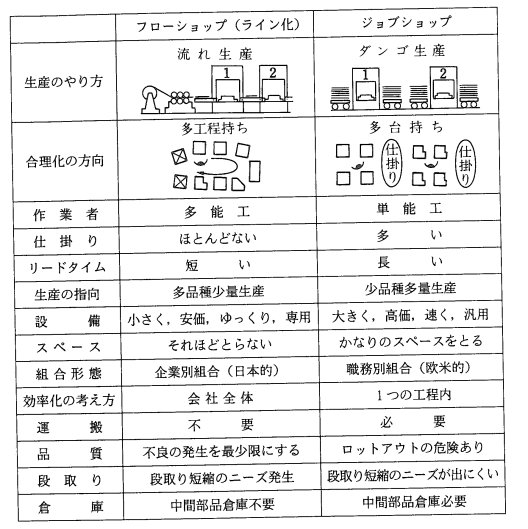 フローショップ（ライン化）　ジョブショップ
生産のやり方　流れ生産　ダンゴ生産
1　2　1　2
合理化の方向　多工程持ち　多台持ち
仕掛り　仕掛り
作業者　多能工　単能工
仕掛り　ほとんどない　多い
リードタイム　短い　長い
生産の指向　多品種少量生産　少品種多量生産
設備　小さく，安価，ゆっくり，専用　大きく，高価，速く，汎用
スペース　それほどとらない　かなりのスペースをとる
組合形態　企業別組合（日本的）　職務別組合（欧米的）
効率化の考え方　会社全体　1つの工程内
運搬　不要　必要
品質　不良の発生を最少限にする　ロットアウトの危険あり
段取り　段取り短縮のニーズ発生　段取り短縮のニーズが出にくい
倉庫　中間部品倉庫不要　中間部品倉庫必要